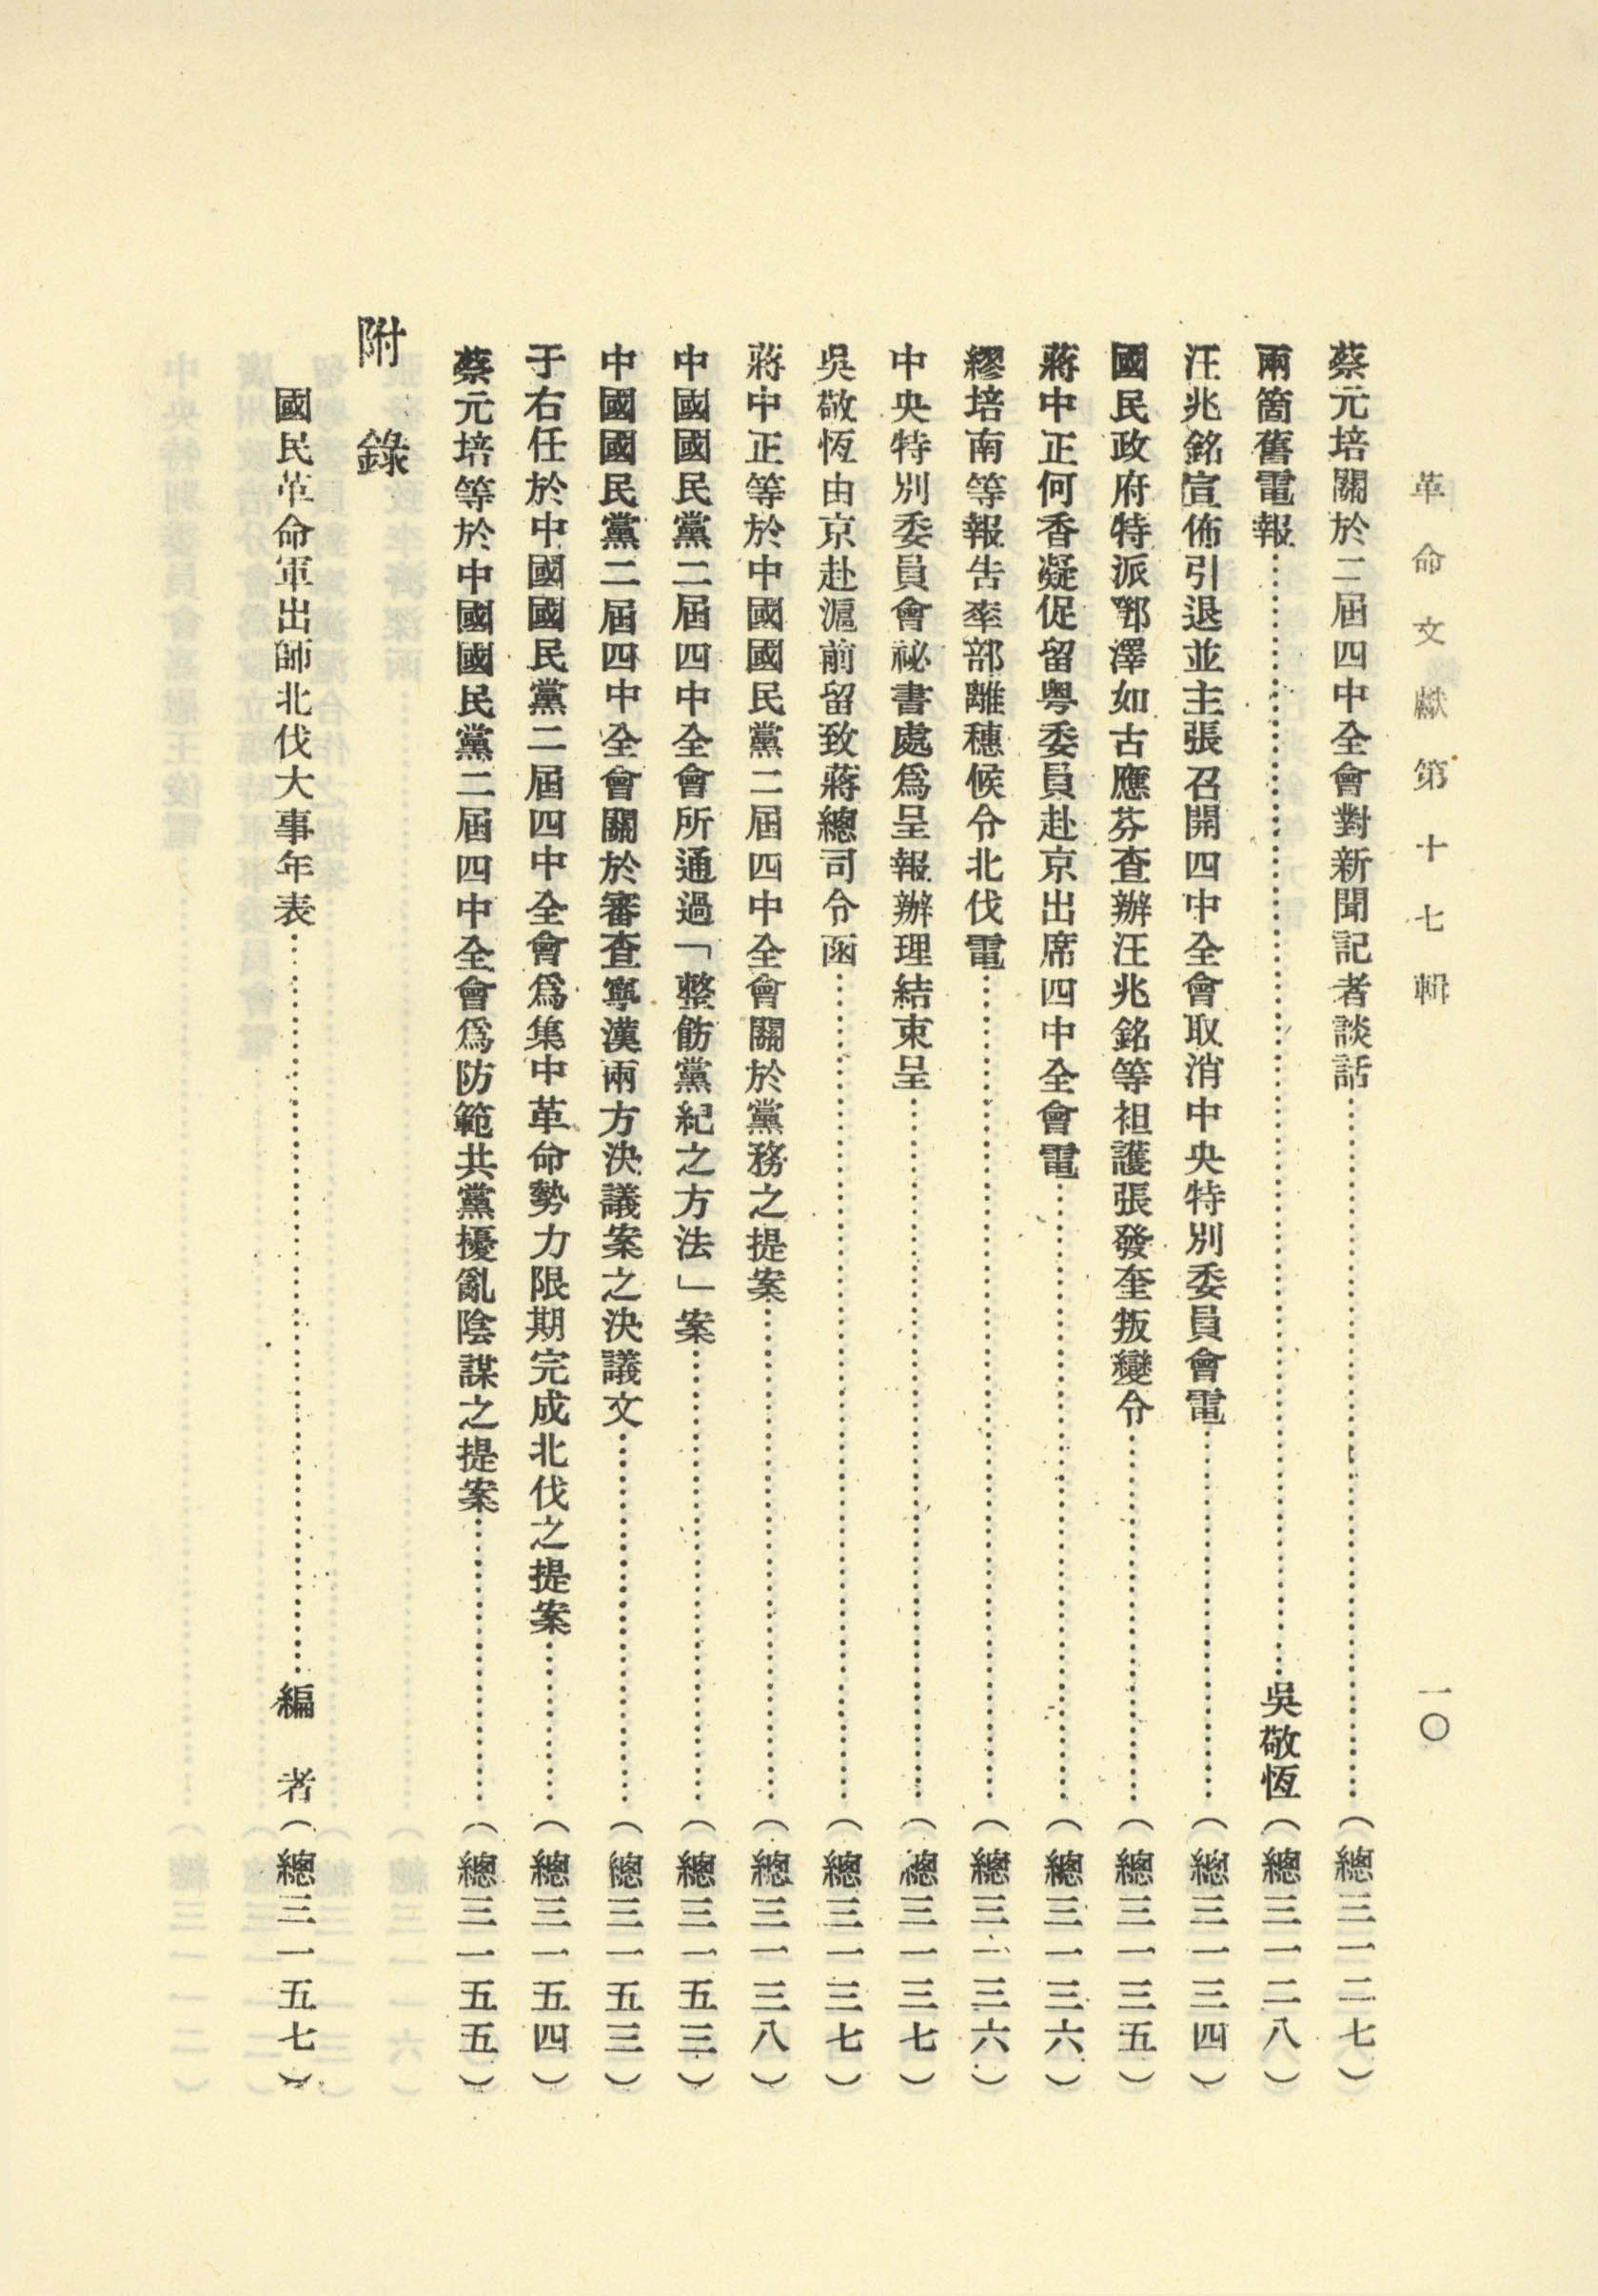 革命文獻第十七輯 一〇
蔡元培關於二屆四中全會對新聞記者談話……(總三一二七)
兩箇舊電報……吳敬恆(總三一二八)
汪兆銘宣佈引退並主張召開四中全會取消中央特別委員會電……(總三一三四)
國民政府特派鄧澤如古應芬查辦汪兆銘等袒護張發奎叛變令……(總三一三五)
蔣中正何香凝促留粵委員赴京出席四中全會電……(總三一三六)
繆培南等報告率部離穗候令北伐電……(總三一三六)
中央特別委員會祕書處爲呈報辦理結束呈……(總三一三七)
吳敬恆由京赴滬前留致蔣總司令函……(總三一三七)
蔣中正等於中國國民黨二屆四中全會關於黨務之提案……(總三一三八)
中國國民黨二屆四中全會所通過「整飭黨紀之方法」案……(總三一五三)
中國國民黨二屆四中全會關於審查寧漢兩方決議案之決議文……(總三一五三)
于右任於中國國民黨二屆四中全會爲集中革命勢力限期完成北伐之提案……(總三一五四)
蔡元培等於中國國民黨二屆四中全會爲防範共黨擾亂陰謀之提案……(總三一五五)
附錄
國民革命軍出師北伐大事年表……編者(總三一五七)